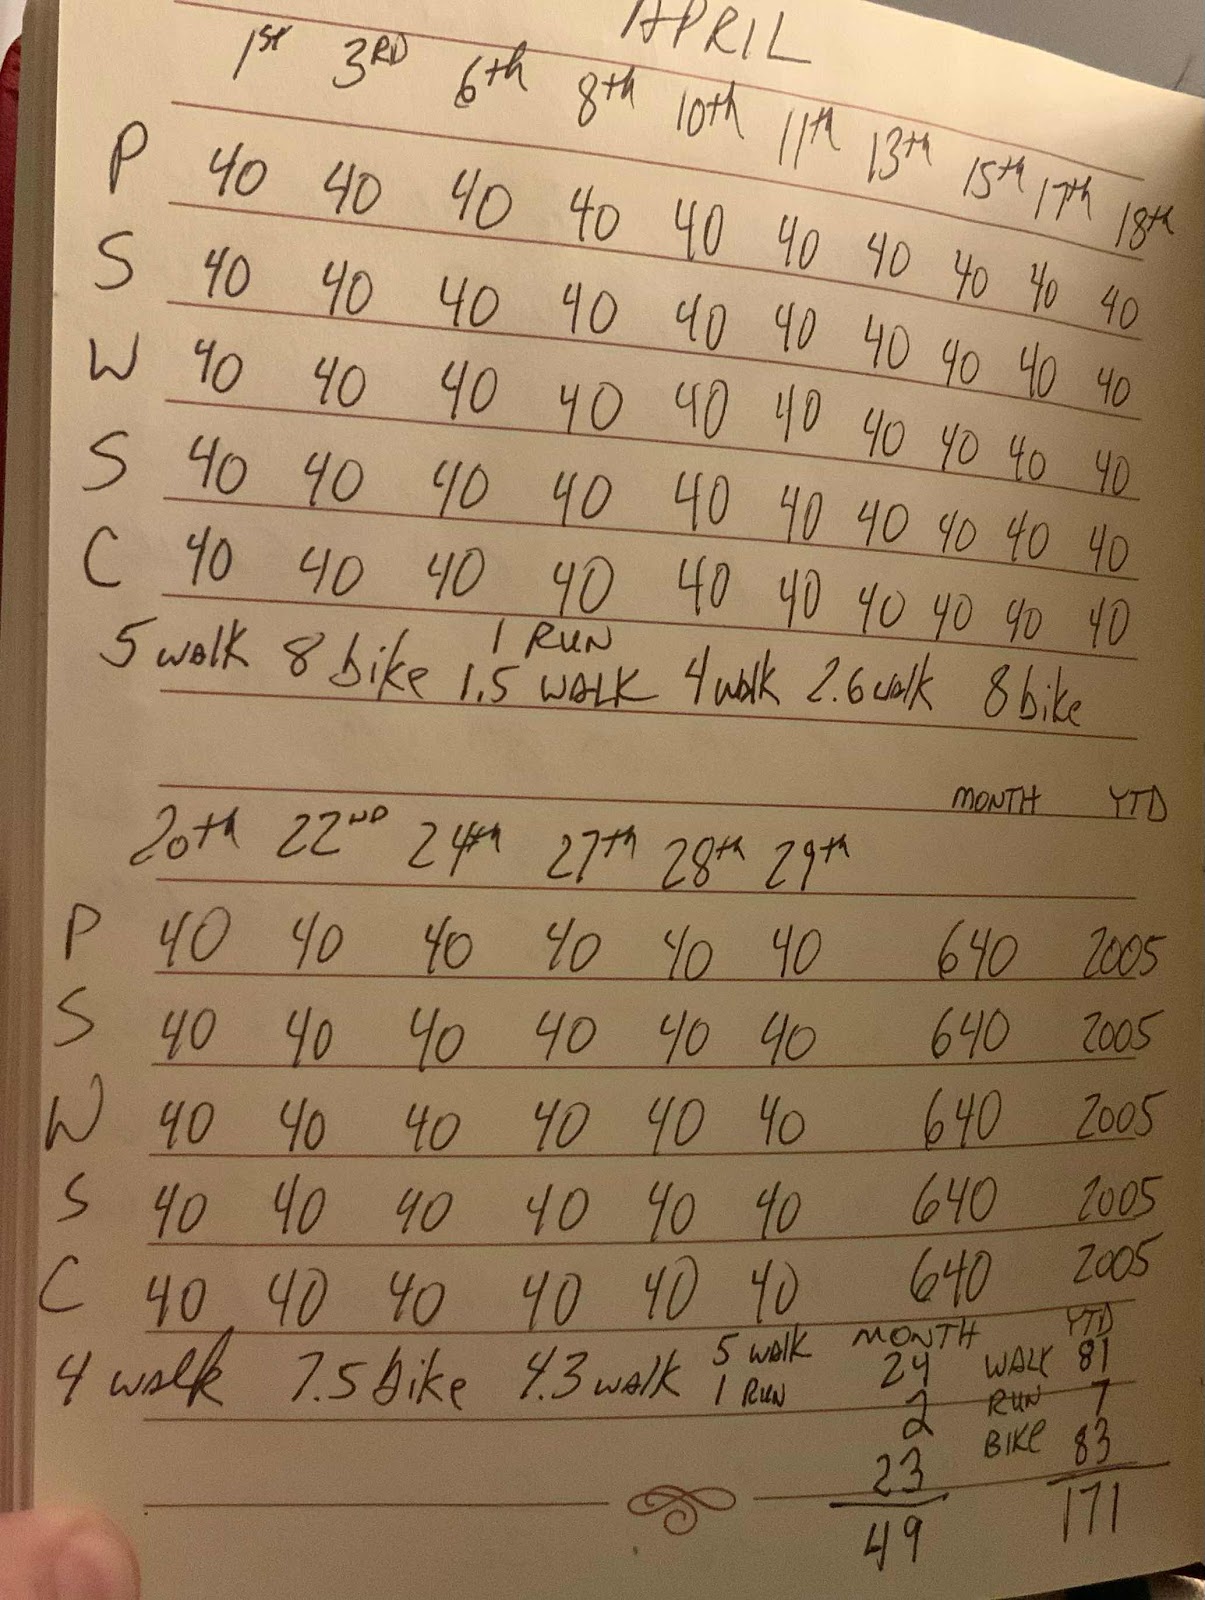 APRIL
1st 3RD 6th 8th 10th 11th 13th 15th 17th 18th
P 40 40 40 40 40 40 40 40 40 40
S 40 40 40 40 40 40 40 40 40 40
W 40 40 40 40 40 40 40 40 40 40
S 40 40 40 40 40 40 40 40 40 40
C 40 40 40 40 40 40 40 40 40 40
1 RUN
5 walk 8 bike 1.5 WALK 4 walk 2.6 walk 8 bike
MONTH YTD
20th 22ND 24th 27th 28th 29th
P 40 40 40 40 40 40 640 2005
S 40 40 40 40 40 40 640 2005
W 40 40 40 40 40 40 640 2005
S 40 40 40 40 40 40 640 2005
C 40 40 40 40 40 40 640 2005
MONTH YTD
4 walk 7.5 bike 4.3 walk 5 WALK 24 WALK 81
1 RUN 2 RUN 7
23 BIKE 83
49 171